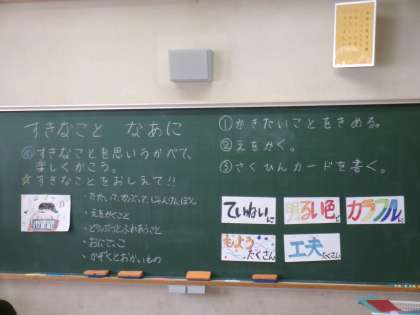 すきなこと なあに
めすきなことを思いうかべて、
楽しくかこう。
☆すきなことをおしえて!!
・えをかくこと
・どうぶつとふれあうこと
・おにごっこ
・かぞくとおかいもの
①かきたいことをきめる。
②えをかく。
③さくひんカードを書く。
ていねいに
明るい色で
カラフルに
もよう
たくさん
工夫
たくさん